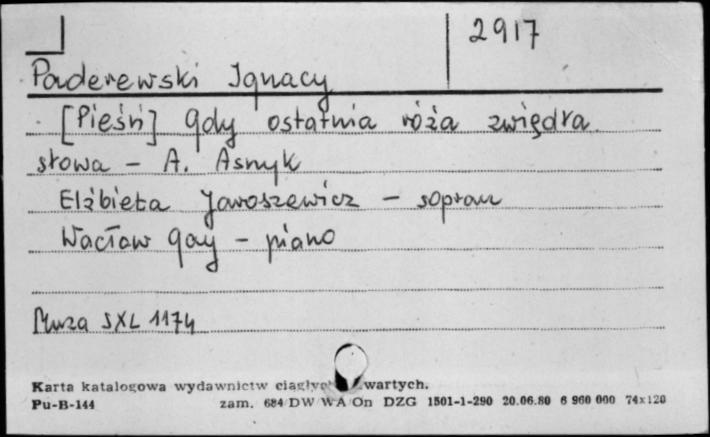 2917
Paderewski Ignacy
[Pieśń] gdy ostatnia róża zwiędła
słowa - A. Asnyk
Elżbieta Jaroszewicz - sopran
Wacław Gay - piano
Muza SXL 1174
Karta katalogowa wydawnictw wartych.
Pu-B-144 zam. 684/DW/WA/On DZG 1501-1-290 20.06.80 6 960 000 74x120